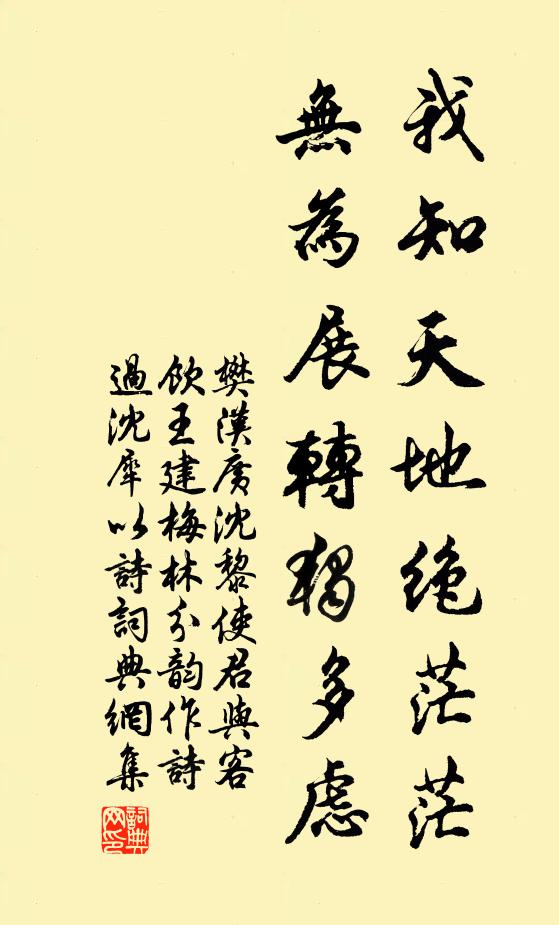 我知天地絶茫茫
無為展轉獨多慮
樊漢廣沈黎使君與客
飲王建梅林分韵作詩
過沈犀以詩詞典網集
詞典
网印